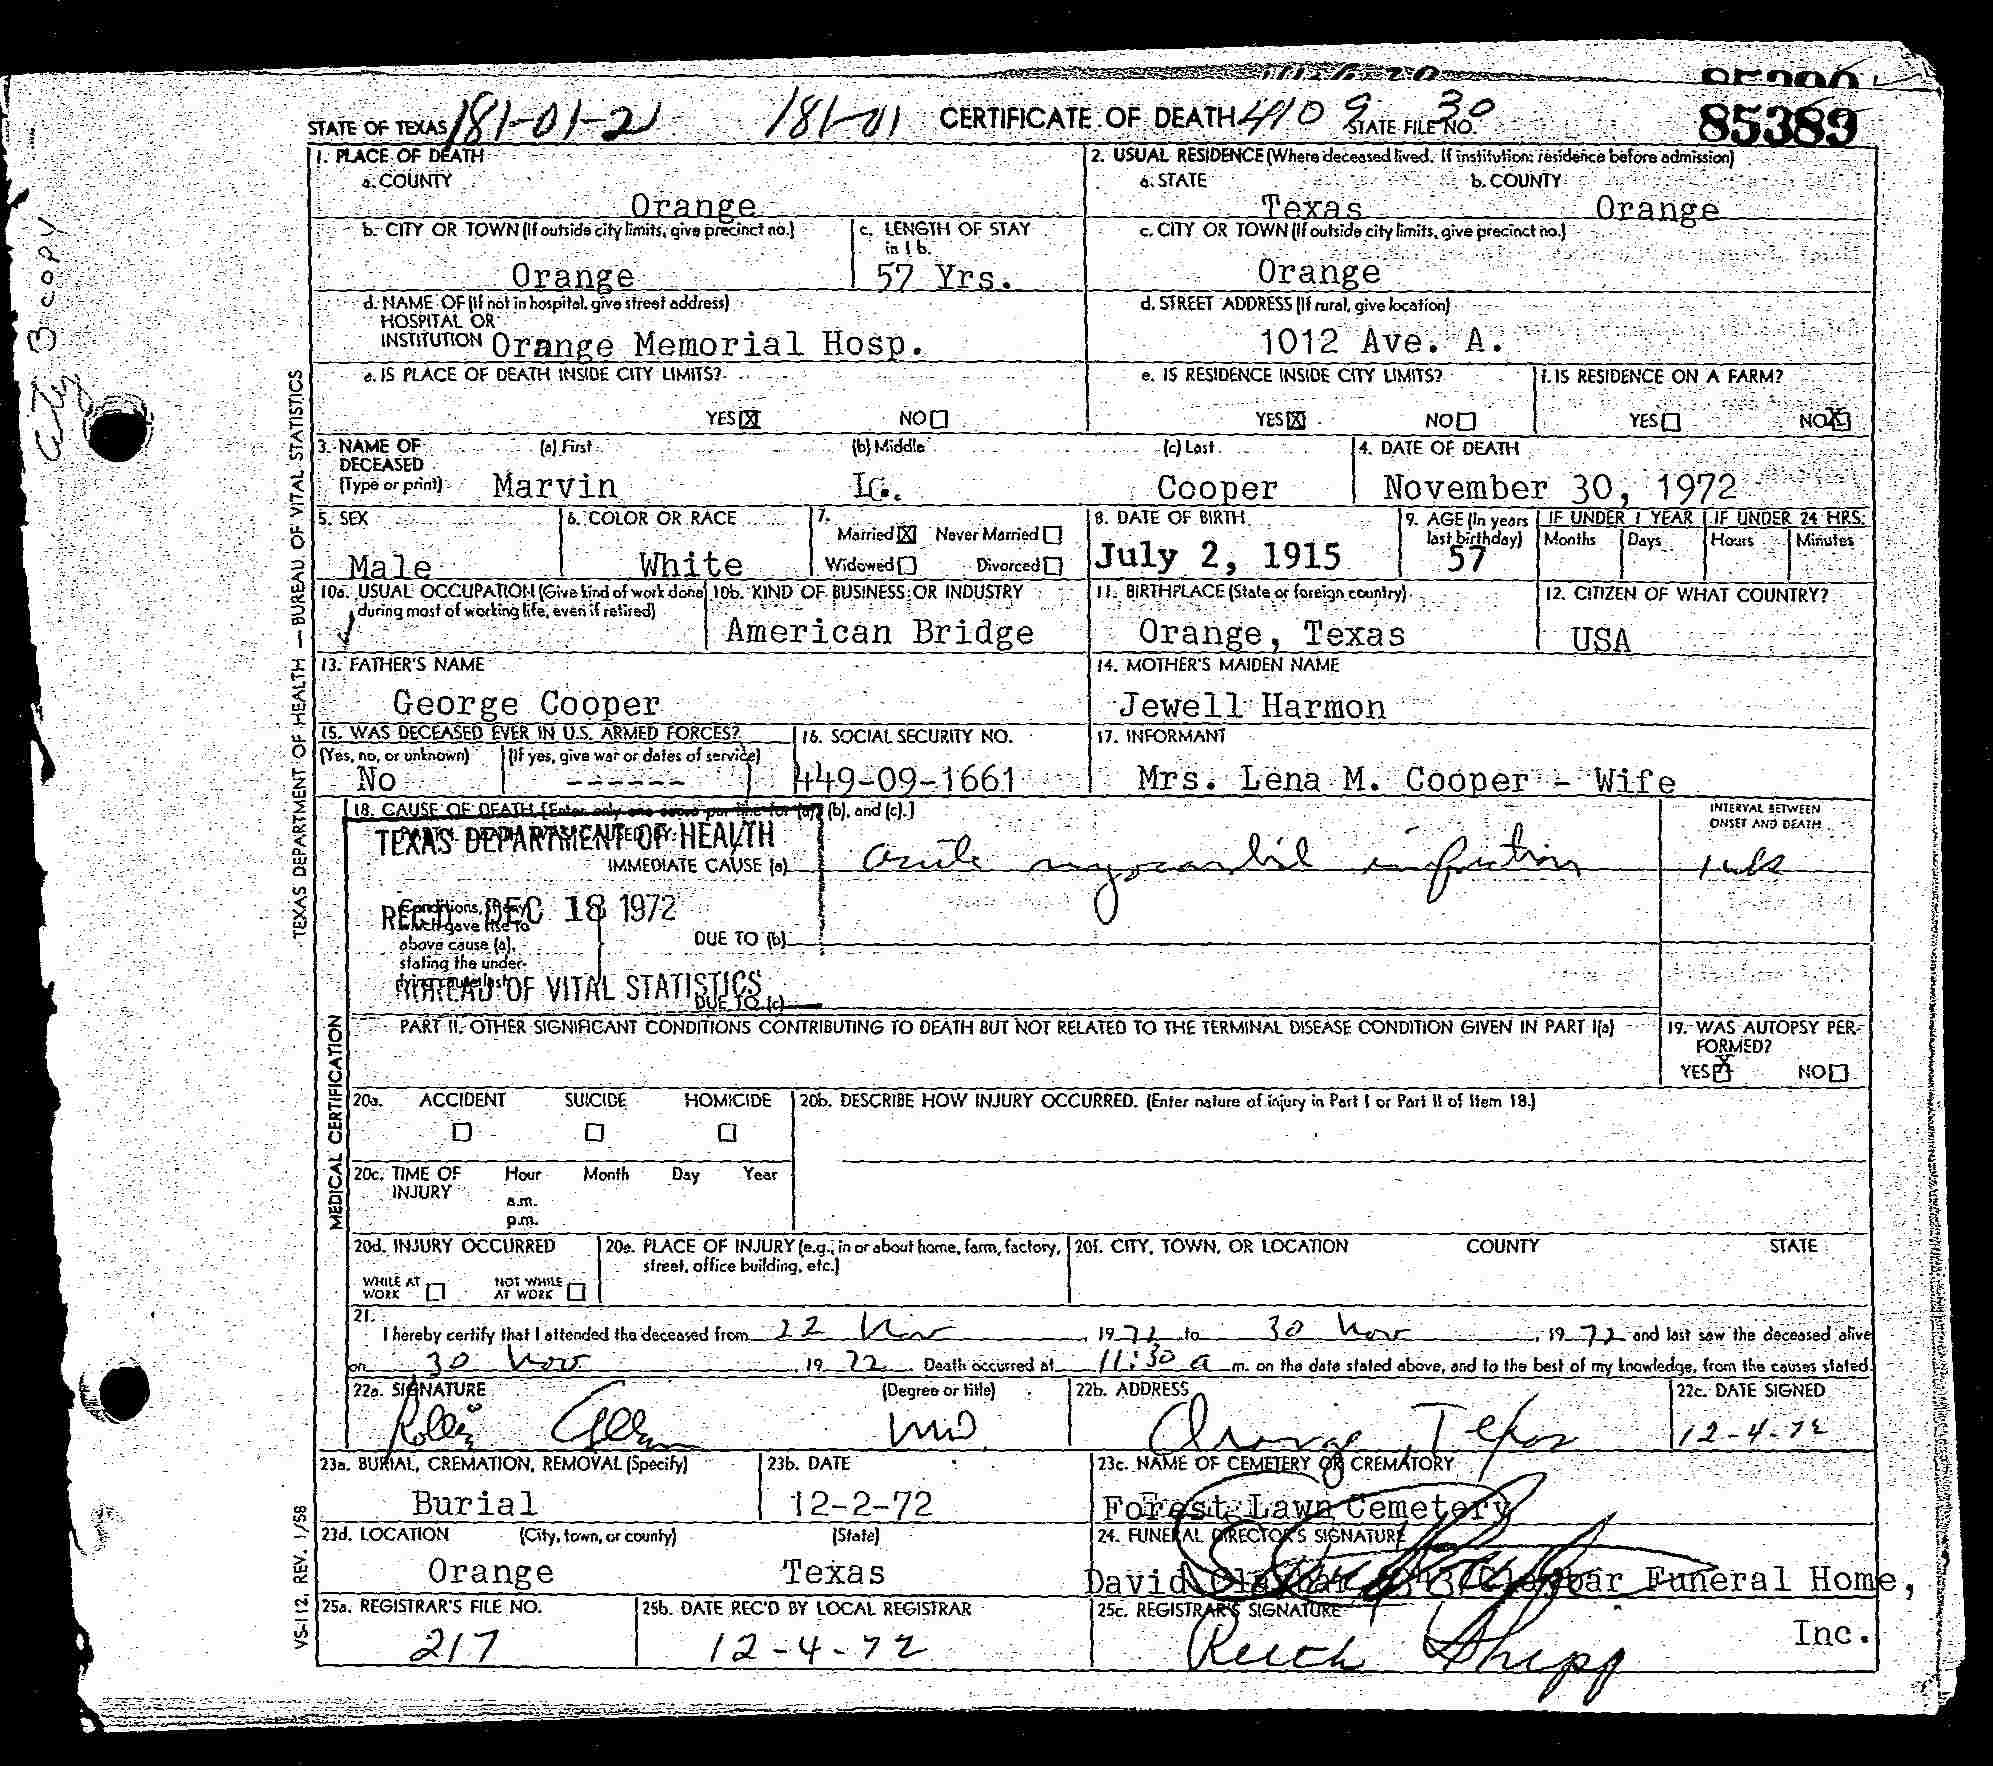 85389
STATE OF TEXAS 181-01-21 181-01 CERTIFICATE OF DEATH 410 9 STATE FILE NO. 30
1. PLACE OF DEATH
a. COUNTY
Orange
2. USUAL RESIDENCE (Where deceased lived. If institution: residence before admission)
a. STATE b. COUNTY
Texas Orange
b. CITY OR TOWN (If outside city limits, give precinct no.)
Orange
c. LENGTH OF STAY in 1 b.
57 Yrs.
c. CITY OR TOWN (If outside city limits, give precinct no.)
Orange
d. NAME OF (If not in hospital, give street address)
HOSPITAL OR
INSTITUTION Orange Memorial Hosp.
d. STREET ADDRESS (If rural, give location)
1012 Ave. A.
e. IS PLACE OF DEATH INSIDE CITY LIMITS?
YES X NO
e. IS RESIDENCE INSIDE CITY LIMITS?
YES X NO
f. IS RESIDENCE ON A FARM?
YES NO X
3. NAME OF DECEASED (Type or print)
(a) First (b) Middle (c) Last
Marvin L. Cooper
4. DATE OF DEATH
November 30, 1972
5. SEX
Male
6. COLOR OR RACE
White
7.
Married X Never Married
Widowed Divorced
8. DATE OF BIRTH
July 2, 1915
9. AGE (In years last birthday)
57
IF UNDER 1 YEAR
Months Days
IF UNDER 24 HRS.
Hours Minutes
10a. USUAL OCCUPATION (Give kind of work done during most of working life, even if retired)
10b. KIND OF BUSINESS OR INDUSTRY
American Bridge
11. BIRTHPLACE (State or foreign country)
Orange, Texas
12. CITIZEN OF WHAT COUNTRY?
USA
13. FATHER'S NAME
George Cooper
14. MOTHER'S MAIDEN NAME
Jewell Harmon
15. WAS DECEASED EVER IN U.S. ARMED FORCES?
(Yes, no, or unknown) (If yes, give war or dates of service)
No ------
16. SOCIAL SECURITY NO.
449-09-1661
17. INFORMANT
Mrs. Lena M. Cooper - Wife
18. CAUSE OF DEATH [Enter only one cause per line for (a), (b), and (c).]
INTERVAL BETWEEN ONSET AND DEATH
TEXAS DEPARTMENT OF HEALTH
IMMEDIATE CAUSE (a) acute myocardial infarction
REC'D DEC 18 1972
Conditions, if any, which gave rise to above cause (a), stating the underlying cause last.
DUE TO (b)
BUREAU OF VITAL STATISTICS
DUE TO (c)
PART II. OTHER SIGNIFICANT CONDITIONS CONTRIBUTING TO DEATH BUT NOT RELATED TO THE TERMINAL DISEASE CONDITION GIVEN IN PART I(a)
19. WAS AUTOPSY PERFORMED?
YES X NO
20a. ACCIDENT SUICIDE HOMICIDE
20b. DESCRIBE HOW INJURY OCCURRED. (Enter nature of injury in Part I or Part II of Item 18.)
20c. TIME OF INJURY Hour Month Day Year
a.m.
p.m.
20d. INJURY OCCURRED
WHILE AT WORK NOT WHILE AT WORK
20e. PLACE OF INJURY (e.g., in or about home, farm, factory, street, office building, etc.)
20f. CITY, TOWN, OR LOCATION COUNTY STATE
21.
I hereby certify that I attended the deceased from 22 Nov, 1972 to 30 Nov, 1972 and last saw the deceased alive
on 30 Nov, 1972. Death occurred at 11:30 a m. on the date stated above, and to the best of my knowledge, from the causes stated.
22a. SIGNATURE (Degree or title)
MD
22b. ADDRESS
Orange, Texas
22c. DATE SIGNED
12-4-72
23a. BURIAL, CREMATION, REMOVAL (Specify)
Burial
23b. DATE
12-2-72
23c. NAME OF CEMETERY OR CREMATORY
Forest Lawn Cemetery
23d. LOCATION (City, town, or county) (State)
Orange Texas
24. FUNERAL DIRECTOR'S SIGNATURE
David Claybar Claybar Funeral Home, Inc.
25a. REGISTRAR'S FILE NO.
217
25b. DATE REC'D BY LOCAL REGISTRAR
12-4-72
25c. REGISTRAR'S SIGNATURE
Shipp
TEXAS DEPARTMENT OF HEALTH — BUREAU OF VITAL STATISTICS
MEDICAL CERTIFICATION
VS-112, REV. 1/58
City 3 copy